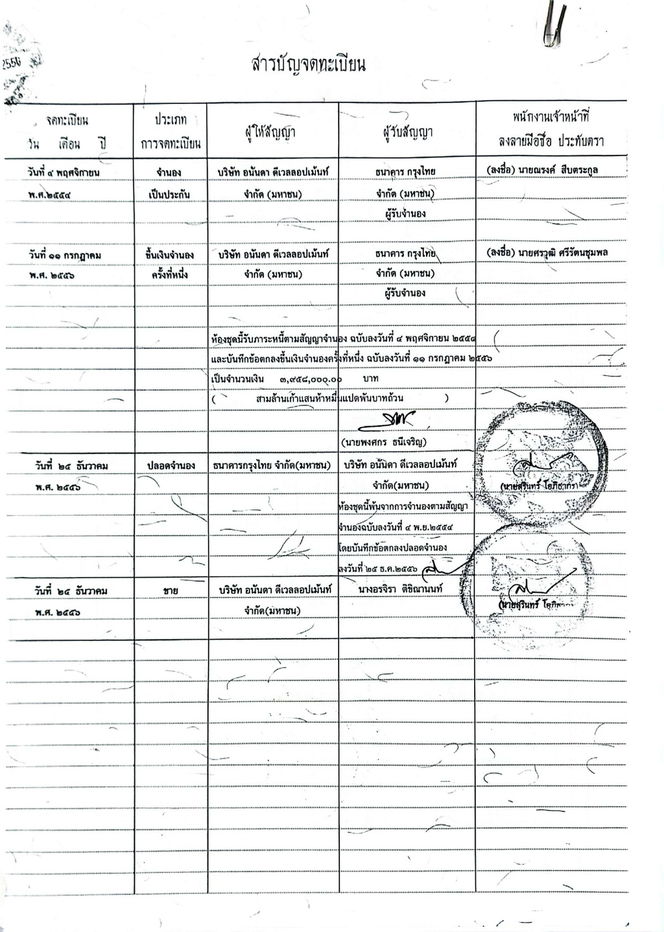 2556
สารบัญจดทะเบียน
จดทะเบียน
วัน เดือน ปี
ประเภท
การจดทะเบียน
ผู้ให้สัญญา
ผู้รับสัญญา
พนักงานเจ้าหน้าที่
ลงลายมือชื่อ ประทับตรา
วันที่ ๔ พฤศจิกายน จำนอง บริษัท อนันดา ดีเวลลอปเม้นท์ ธนาคาร กรุงไทย (ลงชื่อ) นายณรงค์ สืบตระกูล
พ.ศ.๒๕๕๔ เป็นประกัน จำกัด (มหาชน) จำกัด (มหาชน)
ผู้รับจำนอง
วันที่ ๑๑ กรกฎาคม ขึ้นเงินจำนอง บริษัท อนันดา ดีเวลลอปเม้นท์ ธนาคาร กรุงไทย (ลงชื่อ) นายศราวุฒิ ศรีรัตนชุมพล
พ.ศ. ๒๕๕๖ ครั้งที่หนึ่ง จำกัด (มหาชน) จำกัด (มหาชน)
ผู้รับจำนอง
ห้องชุดนี้รับภาระหนี้ตามสัญญาจำนอง ฉบับลงวันที่ ๔ พฤศจิกายน ๒๕๕๔
และบันทึกข้อตกลงขึ้นเงินจำนองครั้งที่หนึ่ง ฉบับลงวันที่ ๑๑ กรกฎาคม ๒๕๕๖
เป็นจำนวนเงิน ๓,๙๕๘,๐๐๐.๐๐ บาท
( สามล้านเก้าแสนห้าหมื่นแปดพันบาทถ้วน )
(นายพงศกร ธนีเจริญ)
วันที่ ๒๕ ธันวาคม ปลอดจำนอง ธนาคารกรุงไทย จำกัด(มหาชน) บริษัท อนันดา ดีเวลลอปเม้นท์
พ.ศ. ๒๕๕๖ จำกัด(มหาชน) (นายสุรินทร์
ห้องชุดนี้พ้นจากการจำนองตามสัญญา
จำนองฉบับลงวันที่ ๔ พ.ย.๒๕๕๔
โดยบันทึกข้อตกลงปลอดจำนอง
ลงวันที่ ๒๕ ธ.ค.๒๕๕๖
วันที่ ๒๕ ธันวาคม ขาย บริษัท อนันดา ดีเวลลอปเม้นท์ นางอรจิรา ติชิณานนท์
พ.ศ. ๒๕๕๖ จำกัด(มหาชน) (นายสุรินทร์